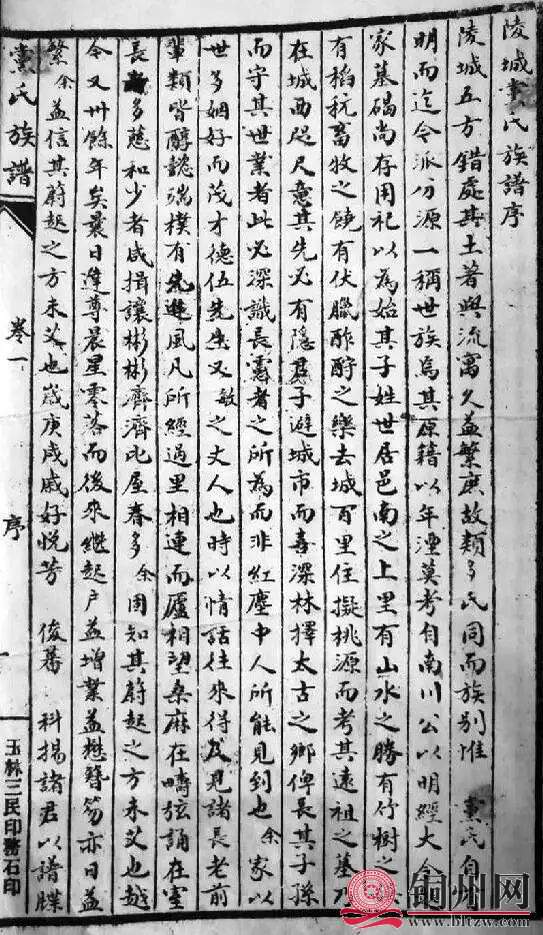 陵城党氏族譜序
陵城五方錯處其土著與流寓久益繁庶故類多氏同而族別惟 党氏自
明而迄今派分源一稱世族焉其原籍以年湮莫考自南川公以明經大令
家墓碣尚存用祀以為始其子姓世居邑南之上里有山水之勝有竹樹之
有稻秔畜牧之饒有伏臘酢酧之樂去城百里住擬桃源而考其遠祖之墓乃
在城西咫尺意其先必有隱君子避城市而喜深林擇太古之鄉俾長其子孫
而守其世業者此必深識長慮者之所為而非紅塵中人所能見到也余家以
世多姻好而茂才德伍先生又敏之丈人也時以情話往來得及見諸長老前
輩類皆醇懿端樸有先進風凡所經過里相連而廬相望桑麻在疇弦誦在室
長者多慈和少者咸揖讓彬彬濟濟比屋春多余固知其蔚起之方未艾也越
今又卅餘年矣曩日逢尊晨星零落而後來繼起户益增業益懋簪笏亦日益
繁余益信其蔚起之方未艾也歲庚戌戚好悅芳 俊蕃 科揚諸君以譜牒
党氏族譜
卷一
序
玉林三民印務石印
铜州网
www.bltzw.com